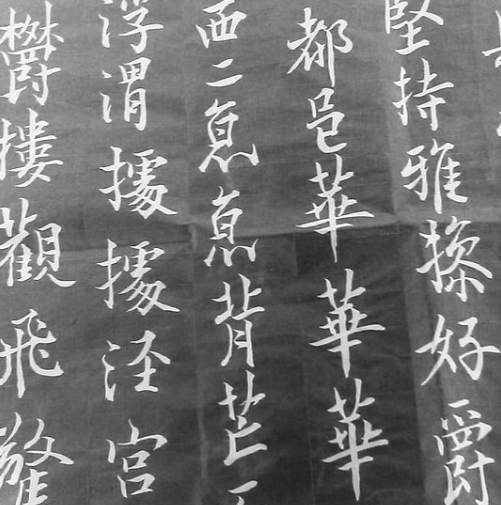 堅持雅操好爵
都邑華華華
西二亰亰背芒
浮渭據據涇宮
欝樓觀飛驚